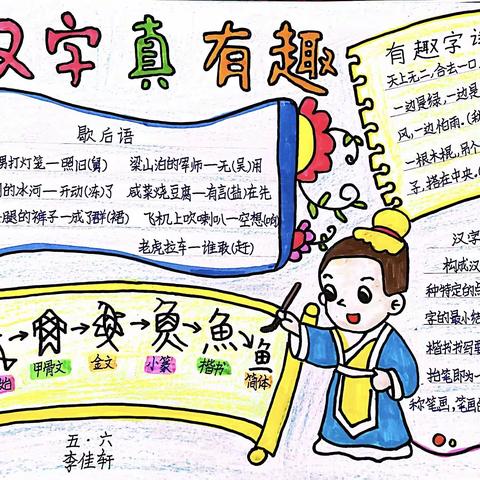 汉字真有趣
歇后语
舅打灯笼一照旧(舅)
梁山泊的军师一无(吴)用
的冰河一开动(冻)了
咸菜烧豆腐一有言(盐)在先
腿的裤子一成了群(裙)
飞机上吹喇叭一空想(响)
老虎拉车一谁敢(赶)
有趣字谜
天上无二,合去一口,
一边是绿,一边是
风,一边怕雨。(秋
一根木棍,吊个
子,搭在中央,
甲骨文
金文
小篆
楷书
简体
汉字
构成汉
种特定的点
字的最小结
楷书书写要
抬笔即为一
称笔画,笔画的
五·六
李佳轩